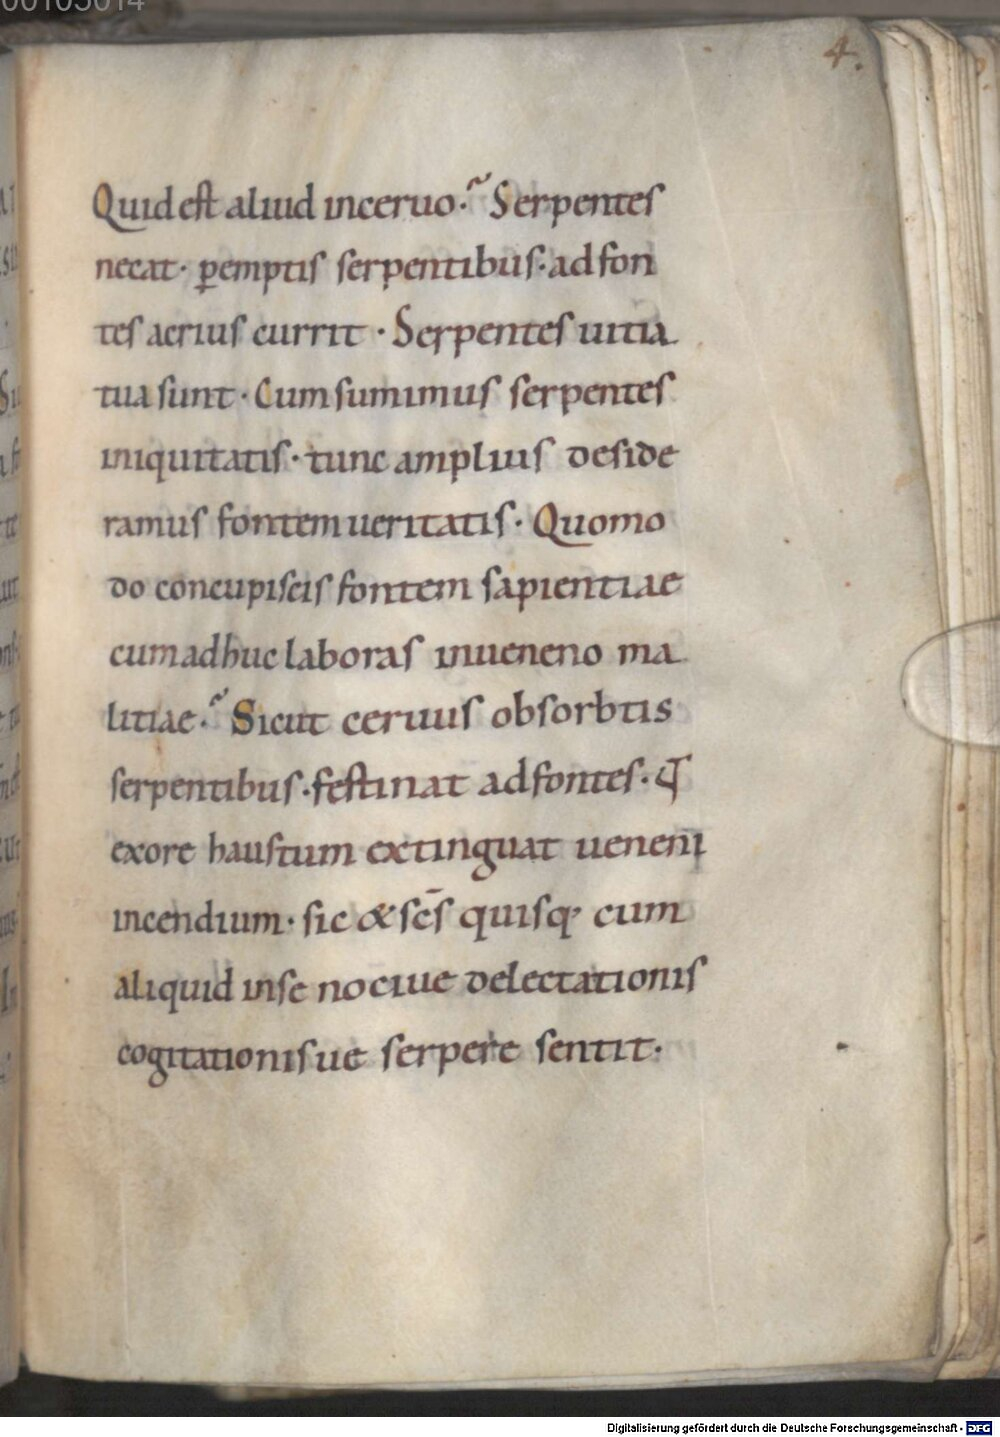 00105014
4.
Quid est aliud inceruo·? Serpentes
necat· ꝑemptis serpentibus· ad fon
tes acrius currit· Serpentes uitia
tua sunt· Cum sumimus serpentes
iniquitatis· tunc amplius deside
ramus fontem ueritatis· Quomo
do concupiscis fontem sapientiae
cum adhuc laboras inueneno ma
litiae·? Sicut ceruus obsorbtis
serpentibus· festinat ad fontes·
exore haustum extinguat ueneni
incendium· sic & sc̄s quisq· cum
aliquid inse nociue delectationis
cogitationisue serpere sentit·
Digitalisierung gefördert durch die Deutsche Forschungsgemeinschaft - DFG